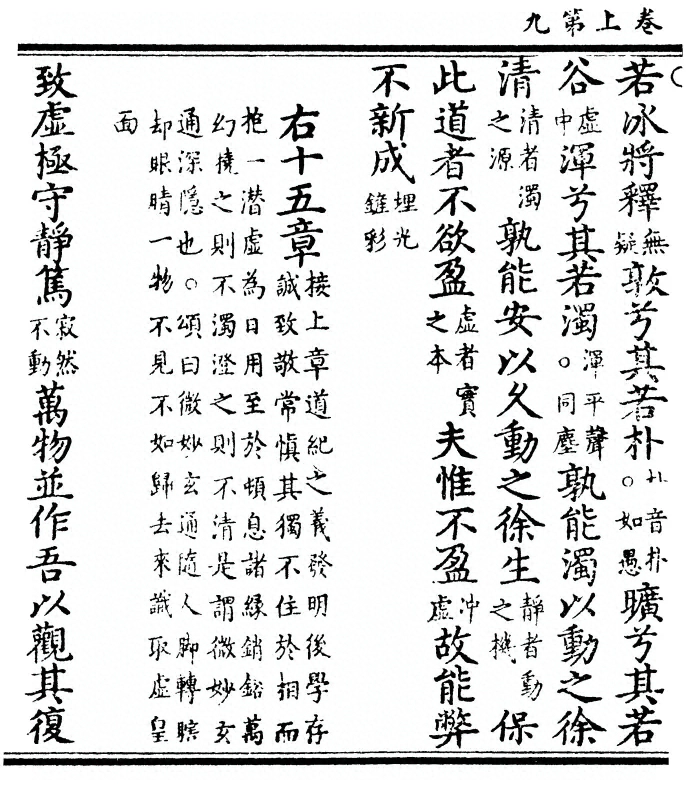 卷上第九
若冰將釋無疑敦兮其若朴朴音扑。如愚曠兮其若
谷虛中渾兮其若濁渾平聲。同塵孰能濁以動之徐
清清者濁之源孰能安以久動之徐生靜者動之機保
此道者不欲盈虛者實之本夫惟不盈沖虛故能弊
不新成埋光鏟彩
右十五章接上章道紀之義發明後學存
誠致敬常慎其獨不住於相而
抱一潛虛為日用至於頓息諸緣銷鎔萬
幻撓之則不濁澄之則不清是謂微妙玄
通深隱也。頌曰微妙玄通隨人脚轉瞎
却眼睛一物不見不如歸去來識取虛皇
面
致虛極守靜篤寂然不動萬物並作吾以觀其復